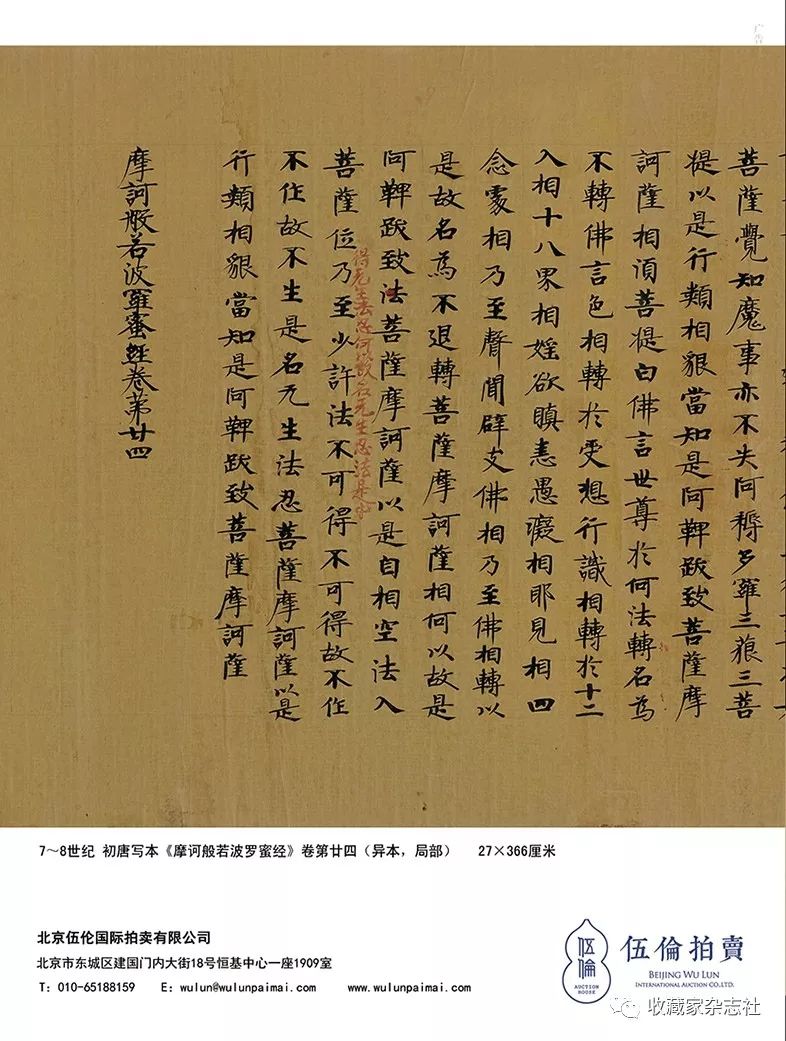 广告
菩薩覺知魔事亦不失阿耨多羅三藐三菩
提以是行類相貌當知是阿鞞跋致菩薩摩
訶薩相須菩提白佛言世尊於何法轉名為
不轉佛言色相轉於受想行識相轉於十二
入相十八界相婬欲瞋恚愚癡相耶見相四
念處相乃至聲聞辟支佛相乃至佛相轉以
是故名為不退轉菩薩摩訶薩相何以故是
阿鞞跋致法菩薩摩訶薩以是自相空法入
得无生法忍何以故名无生忍法是中
菩薩位乃至少許法不可得不可得故不作
不作故不生是名无生法忍菩薩摩訶薩以是
行類相貌當知是阿鞞跋致菩薩摩訶薩
摩訶般若波羅蜜經卷第廿四
7～8世纪 初唐写本《摩诃般若波罗蜜经》卷第廿四（异本，局部） 27×366厘米
北京伍伦国际拍卖有限公司
北京市东城区建国门内大街18号恒基中心一座1909室
T: 010-65188159 E: wulun@wulunpaimai.com www.wulunpaimai.com
伍倫
AUCTION HOUSE
伍倫拍賣
BEIJING WU LUN
INTERNATIONAL AUCTION CO.,LTD.
收藏家杂志社